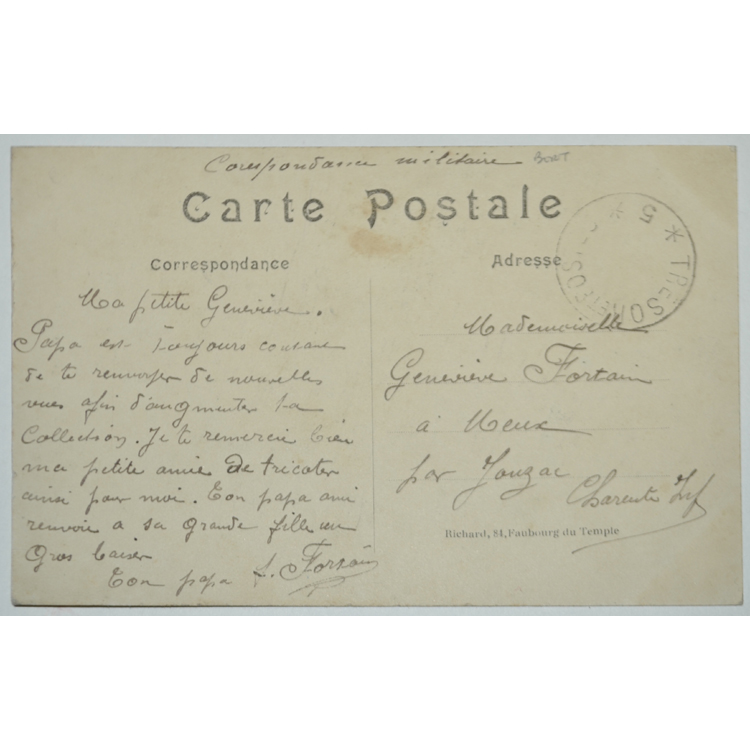 Corespondance militaire
Carte Postale
Correspondance
Adresse
TRESOR ET POSTES * 5 *
Ma petite Geneviève.
Papa est toujours content
de te renvoyer de nouvelles
vues afin d'augmenter ta
Collection. Je te remercie bien
ma petite amie de tricoter
ainsi pour moi. Ton papa ami
renvoie a sa grande fille un
Gros baiser
Ton papa L. Fortain
Mademoiselle
Geneviève Fortain
à Meux
par Jonzac
Charente Inf
Richard, 84, Faubourg du Temple